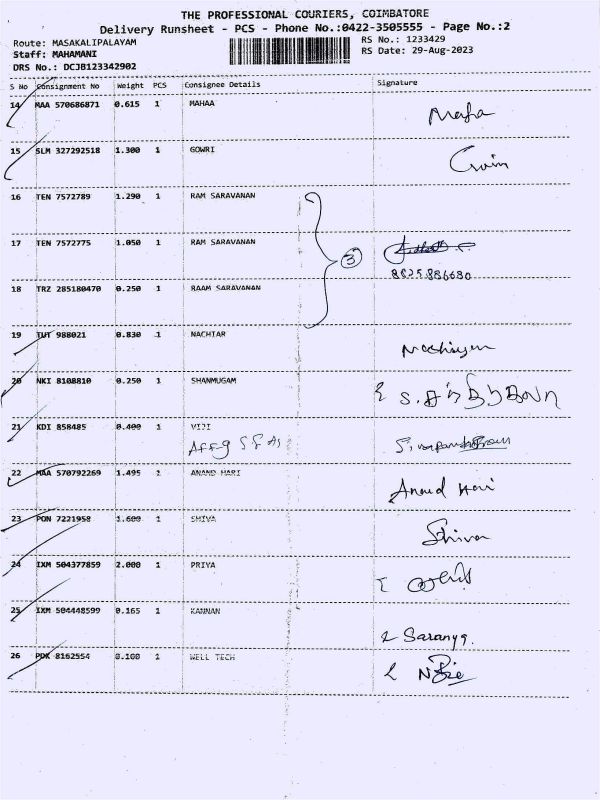 THE PROFESSIONAL COURIERS, COIMBATORE
Delivery Runsheet - PCS - Phone No.:0422-3505555 - Page No.:2
Route: MASAKALIPALAYAM
RS No.: 1233429
Staff: MAHAMANI
RS Date: 29-Aug-2023
DRS No.: DCJB123342902
S No Consignment No Weight PCS Consignee Details Signature
14 MAA 570686871 0.615 1 MAHAA Maha
15 SLM 327292518 1.300 1 GOWRI
16 TEN 7572789 1.290 1 RAM SARAVANAN
17 TEN 7572775 1.050 1 RAM SARAVANAN 3
8825886680
18 TRZ 285180470 0.250 1 RAAM SARAVANAN
19 TUT 988021 0.830 1 NACHIAR
20 NKI 8108810 0.250 1 SHANMUGAM
21 KDI 858485 0.400 1 VIJI
22 MAA 570792269 1.495 1 ANAND HARI Anand Hari
23 PON 7221958 1.600 1 SHIVA Shiva
24 IXM 504377859 2.000 1 PRIYA
25 IXM 504448599 0.165 1 KANNAN Saranya.
26 PDK 8162554 0.100 1 WELL TECH